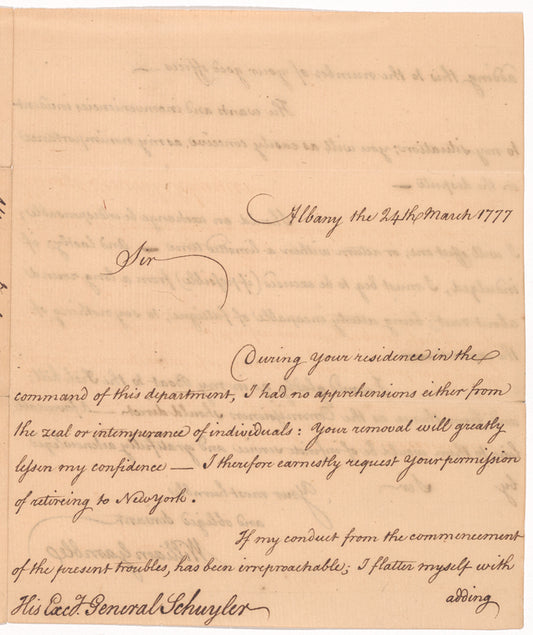 Albany the 24th March 1777
Sir
During Your residence in the
command of this department, I had no apprehensions either from
the zeal or intemperance of individuals: Your removal will greatly
lessen my confidence — I therefore earnestly request Your permission
of retireing to New York.
If my conduct from the commencement
of the present troubles, has been irreproachable; I flatter myself with
adding
His Excy. General Schuyler